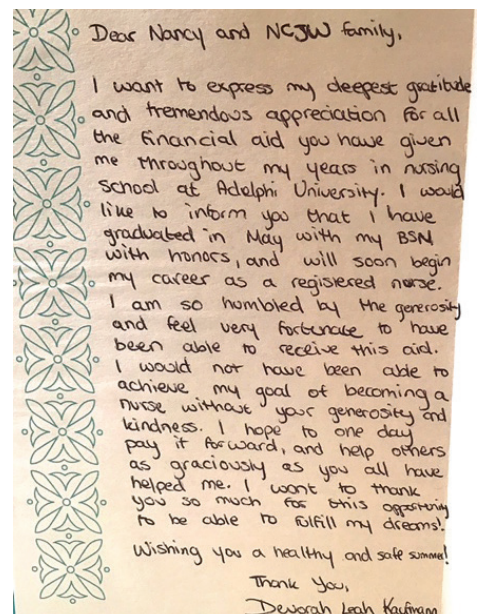 Dear Nancy and NCJW family,
I want to express my deepest gratitude
and tremendous appreciation for all
the financial aid you have given
me throughout my years in nursing
school at Adelphi University. I would
like to inform you that I have
graduated in May with my BSN
with honors, and will soon begin
my career as a registered nurse.
I am so humbled by the generosity
and feel very fortunate to have
been able to receive this aid.
I would not have been able to
achieve my goal of becoming a
nurse without your generosity and
kindness. I hope to one day
pay it forward, and help others
as graciously as you all have
helped me. I want to thank
you so much for this opportunity
to be able to fulfill my dreams!
Wishing you a healthy and safe summer!
Thank You,
Devorah Leah Kaufmann